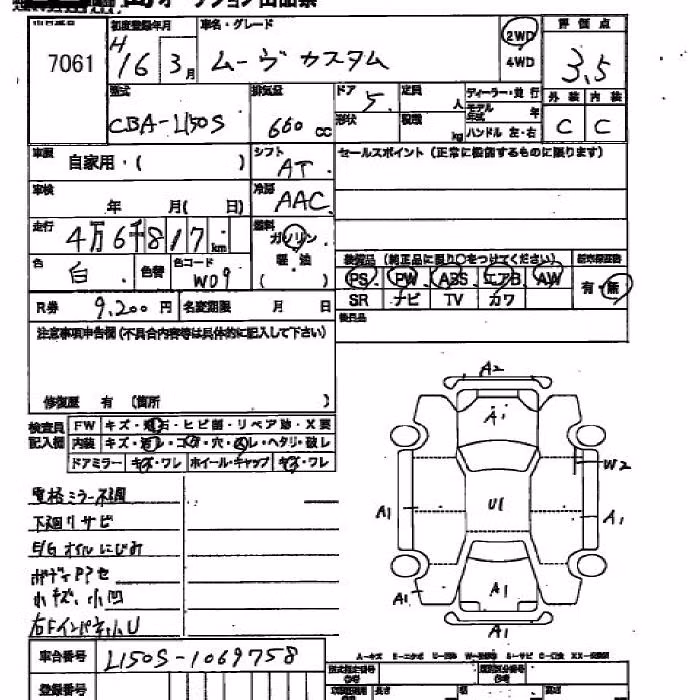 オークション出品票
7061
初度登録年月
H16 3月
車名・グレード
ムーヴ カスタム
2WD
4WD
評価点
3,5
型式
CBA-L150S
排気量
660 cc
ドア
5
定員
人
形状
積載
kg
ディーラー・並行
モデル年式 年
ハンドル 左・右
外装 内装
C C
車歴
自家用・( )
シフト
AT
セールスポイント (正常に設備するものに限ります)
車検
年 月( 日)
冷房
AAC
走行
4万6千817km
燃料
ガソリン
軽油
( )
色
白
色替
色コード
W09
装備品 (純正品に限り○をつけてください)
PS PW ABS エアB AW
SR ナビ TV カワ
新車保証書
有・無
R券 9,200円
名変期限 月 日
後日品
注意事項申告欄(不具合内容等は具体的に記入して下さい)
修復歴 有 (箇所 )
検査員記入欄
FW キズ・飛石・ヒビ割・リペア跡・X要
内装 キズ・汚レ・コゲ・穴・スレ・ヘタリ・破レ
ドアミラー キズ・ワレ ホイール・キャップ キズ・ワレ
電格ミラー不調
下廻りサビ
E/Gオイルにじみ
ボディPアセ
小キズ、小凹
右Fインパネ小U
車台番号
L150S-1069758
登録番号
A2
A1
W2
A1
U1
A1
A1
A1
A1
A-キズ E-エクボ U-凹
型式指定番号
類別区分番号
長さ
幅
高さ